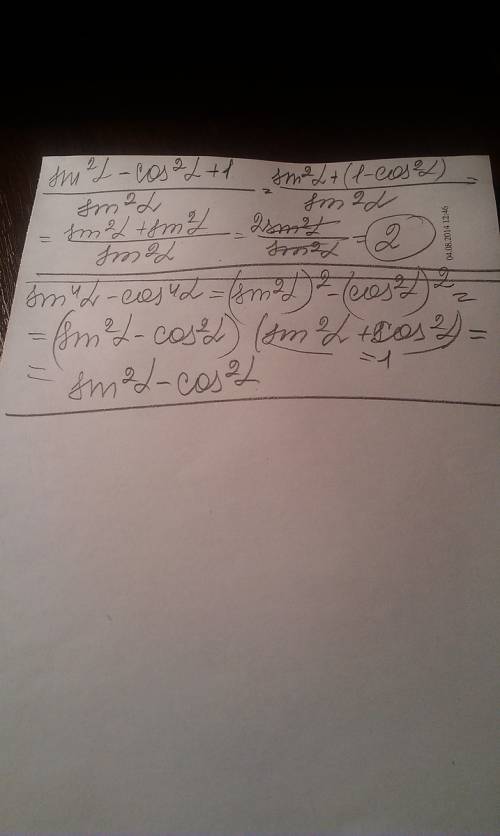 sin²α - cos²α + 1 / sin²α = sin²α + (1 - cos²α) / sin²α =
= sin²α + sin²α / sin²α = 2sin²α / sin²α = 2
04.08.2014 12:46
sin⁴α - cos⁴α = (sin²α)² - (cos²α)² =
= (sin²α - cos²α) (sin²α + cos²α) =
= 1
= sin²α - cos²α